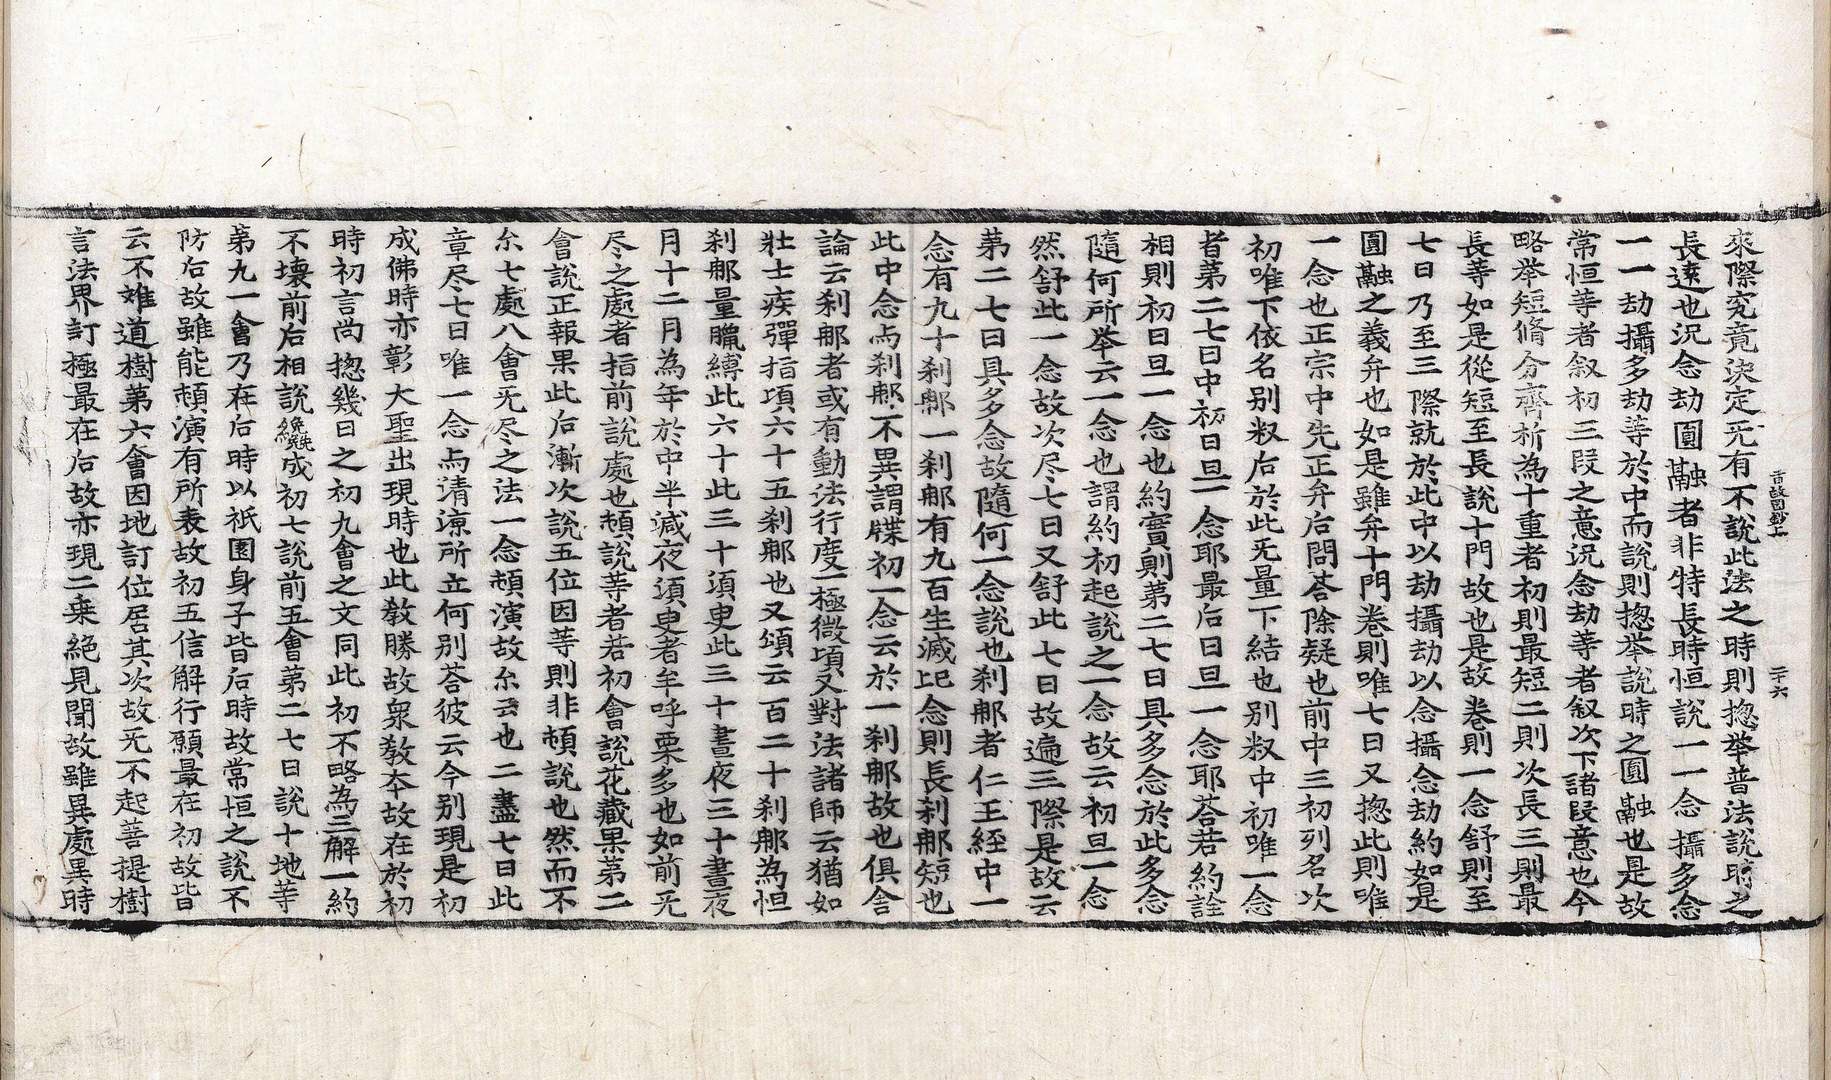 來際究竟決定旡有不說此法之時則揔举普法說時之
長遠也況念劫圓融者非特長時恒說一一念攝多念
一一劫攝多劫等於中而說則揔举說時之圓融也是故
常恒等者叙初三段之意況念劫等者叙次下諸段意也今
略举短脩分齊析為十重者初則最短二則次長三則最
長等如是從短至長說十門故也是故卷則一念舒則至
七日乃至三際就於此中以劫攝劫以念攝念劫約如是
圓融之義弁也如是雖弁十門卷則唯七日又揔此則唯
一念也正宗中先正弁后問荅除疑也前中三初列名次
初唯下依名别釈后於此旡量下結也别釈中初唯一念
者第二七日中初日旦一念耶最后日旦一念耶荅若約詮
相則初日旦一念也約實則第二七日具多念於此多念
隨何所举云一念也謂約初起說之一念故云初旦一念
然舒此一念故次尽七日又舒此七日故遍三際是故云
苐二七日具多念故隨何一念說也刹郍者仁王経中一
念有九十刹郍一刹郍有九百生滅比念則長刹郍短也
此中念与刹郍不異謂牒初一念云於一刹郍故也俱舍
論云刹郍者或有動法行度一極微頃又對法諸師云猶如
壯士疾彈指頃六十五刹郍也又頌云百二十刹郍為怛
刹郍量臘縛此六十此三十須臾此三十晝夜三十晝夜
月十二月為年於中半減夜須臾者牟呼栗多也如前旡
尽之處者指前說處也頓說等者若初會說花藏果第二
會說正報果此后漸次說五位因等則非頓說也然而不
尒七處八會旡尽之法一念頓演故尒云也二盡七日此
章尽七日唯一念与清涼所立何别荅彼云今别現是初
成佛時亦彰大聖出現時也此教勝故衆教夲故在於初
時初言尚揔幾日之初九會之文同此初不略為三解一約
不壞前后相說纔成初七說前五會第二七日說十地等
第九一會乃在后時以祇園身子皆后時故常恒之說不
防后故雖能頓演有所表故初五信解行願最在初故皆
云不雉道樹第六會因地訂位居其次故旡不起菩提樹
言法界訂極最在后故亦現二乗絶見聞故雖異處異時
二十六